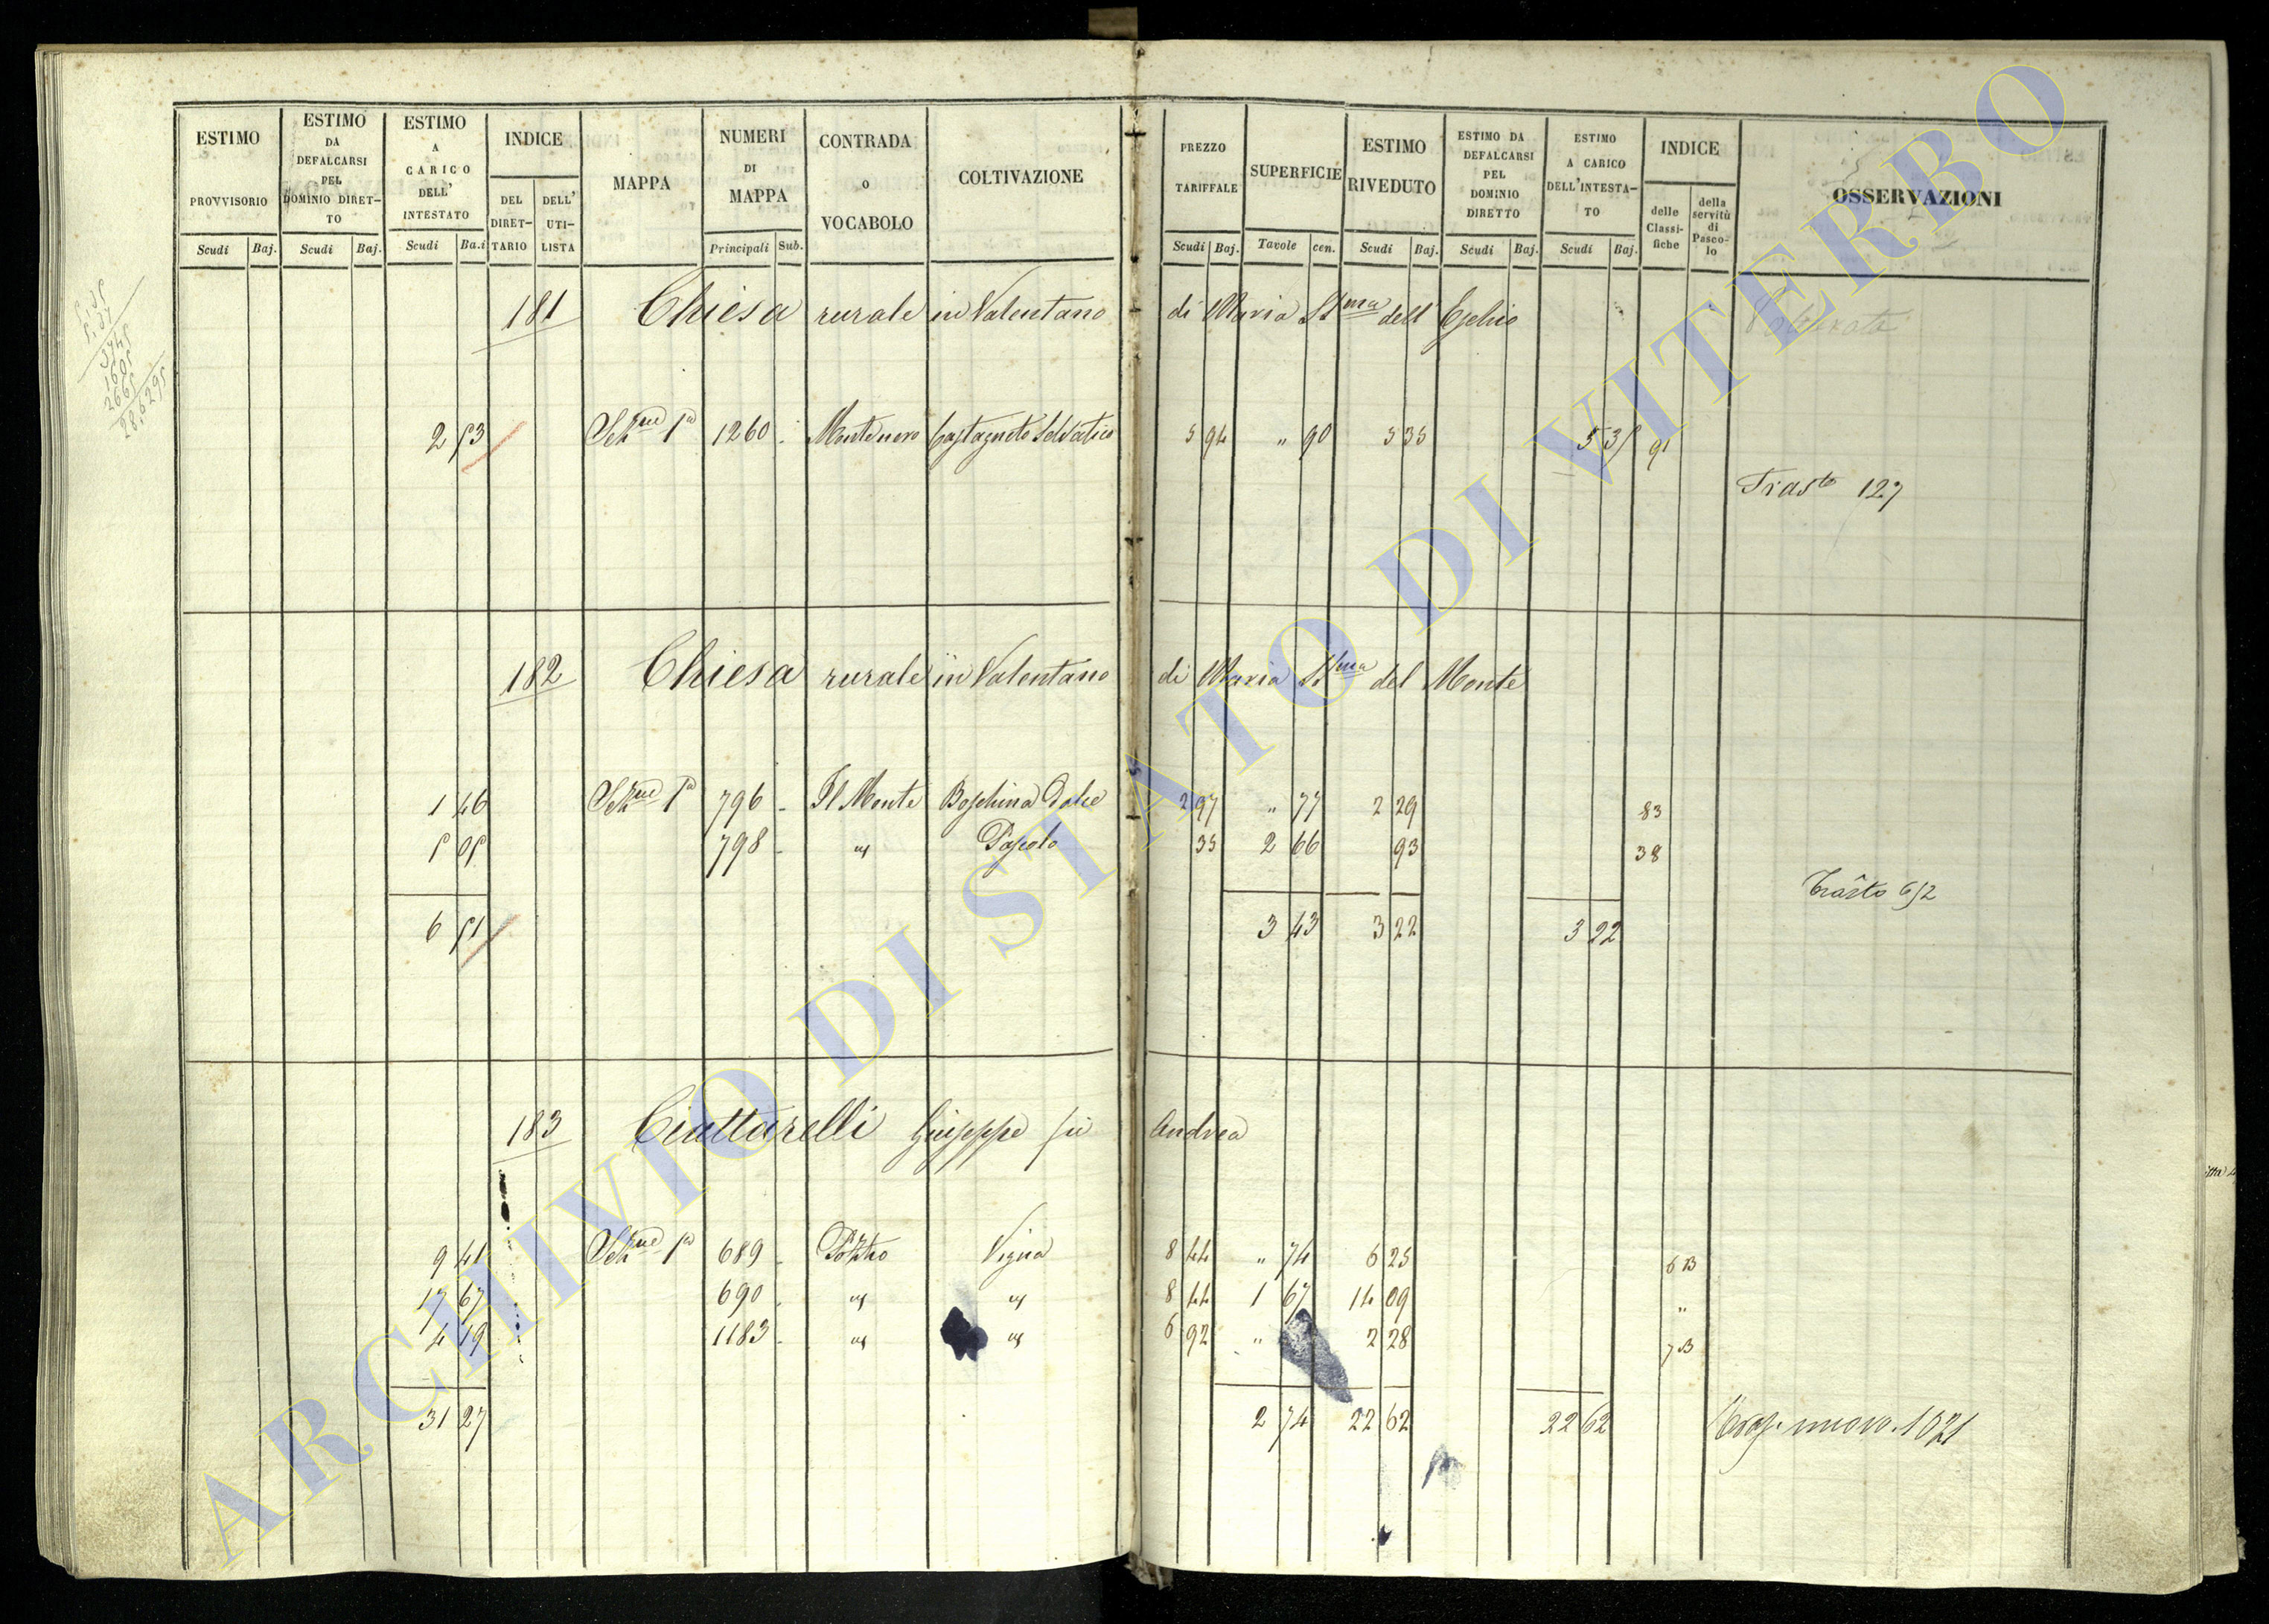 ESTIMO PROVVISORIO | ESTIMO DA DEFALCARSI PEL DOMINIO DIRET-TO | ESTIMO A CARICO DELL' INTESTATO | INDICE DEL DIRET-TARIO | DELL' UTI-LISTA | MAPPA | NUMERI DI MAPPA | CONTRADA o VOCABOLO | COLTIVAZIONE | PREZZO TARIFFALE | SUPERFICIE | ESTIMO RIVEDUTO | ESTIMO DA DEFALCARSI PEL DOMINIO DIRETTO | ESTIMO A CARICO DELL'INTESTA-TO | INDICE delle Classi-fiche | della servitù di Pasco-lo | OSSERVAZIONI
Scudi Baj. Scudi Baj. Scudi Ba.i Principali Sub. Scudi Baj. Tavole cen. Scudi Baj. Scudi Baj. Scudi Baj.
181 Chiesa rurale in Valentano di Maria SSma dell'
2 53 Sezne 1a 1260 . Montenero Castagneto Selvatico 5 94 " 90 5 35 5 35 91
Trasto 127
182 Chiesa rurale in Valentano di Maria SSma del Monte
1 46 Sezne 1a 796 - Il Monte Boschina Dolce 2 97 " 77 2 29 83
5 05 798 - " Pascolo 35 2 66 93 38
Trasto 652
6 51 3 43 3 22 3 22
183 Ciattarelli Giuseppe fù Andrea
9 41 Sezne 1a 689 - Pozzo Vigna 8 44 " 74 6 25 6 B
17 67 690 . " " 8 44 1 67 14 09 "
4 19 1183 . " " 6 92 " 2 28 7 B
31 27 2 74 22 62 22 62 nuovo. 1021
ARCHIVIO DI STATO DI VITERBO